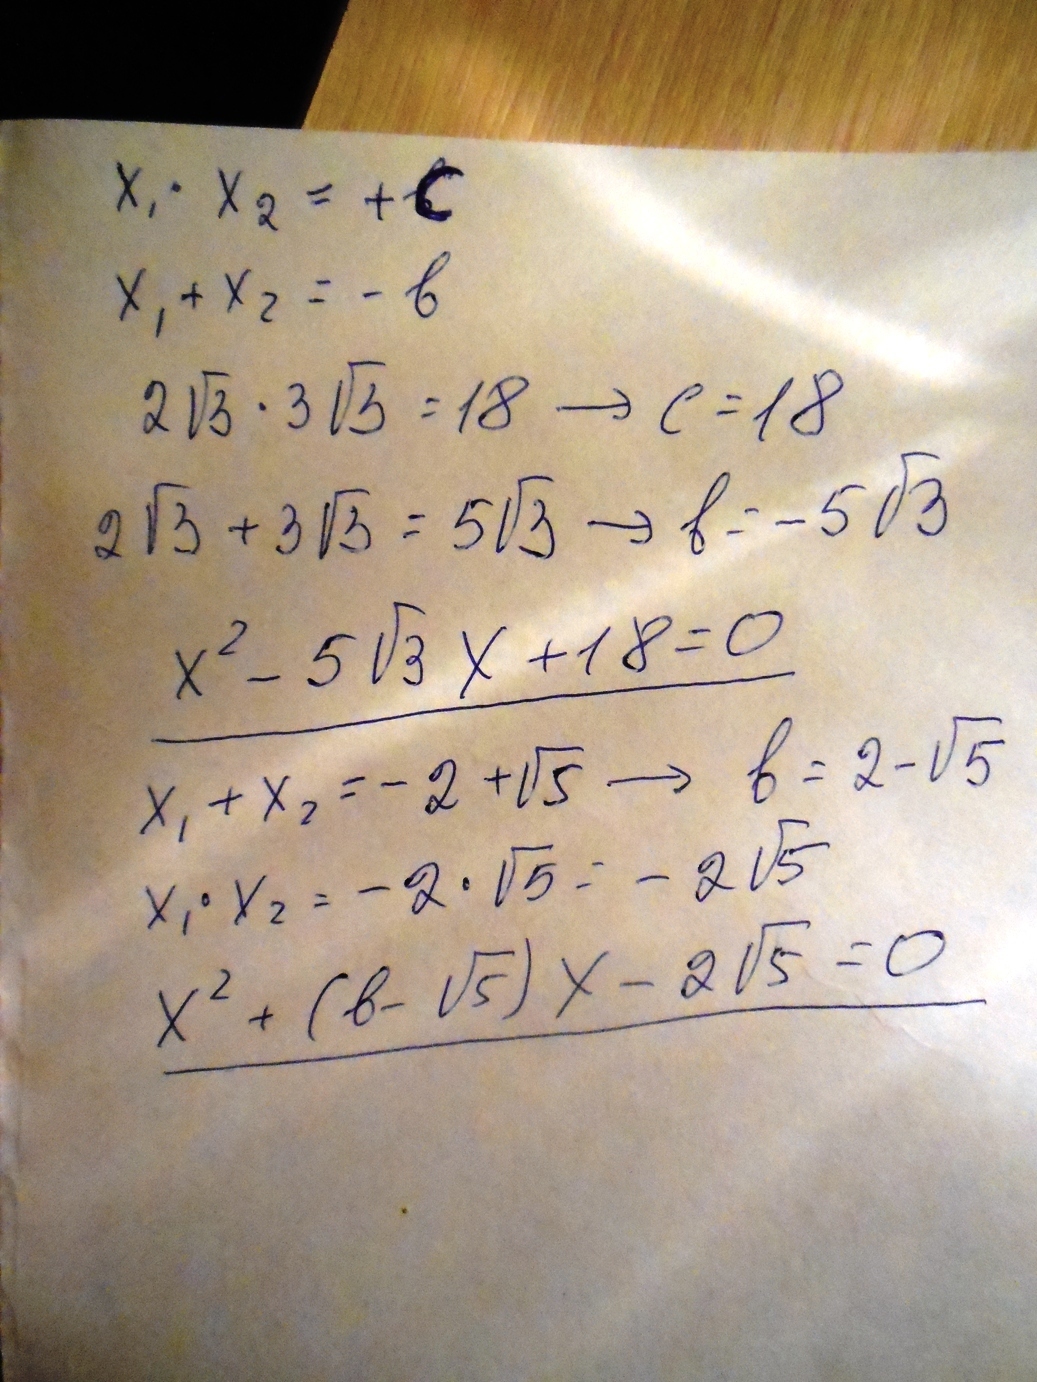 x₁ · x₂ = +c
x₁ + x₂ = - b
2√3 · 3√3 = 18 → c = 18
2√3 + 3√3 = 5√3 → b = - 5√3
x² - 5√3 x + 18 = 0
x₁ + x₂ = - 2 + √5 → b = 2 - √5
x₁ · x₂ = - 2 · √5 = - 2√5
x² + (b - √5) x - 2√5 = 0